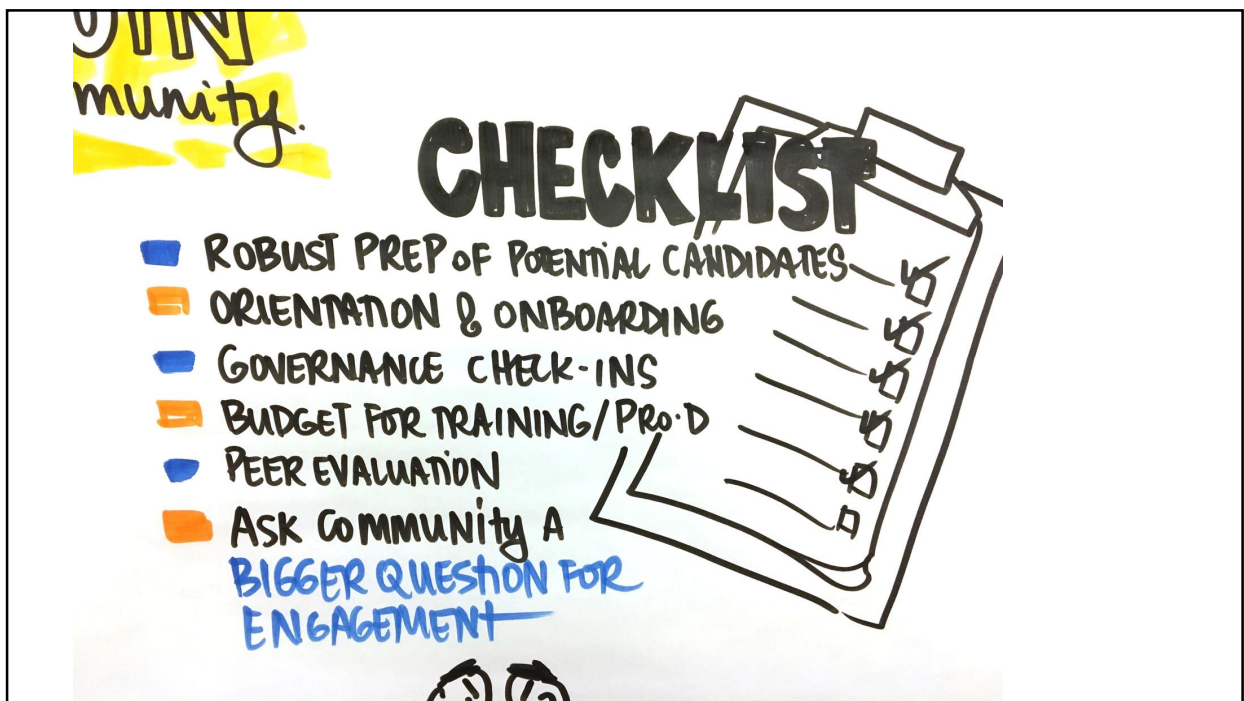 munity.
CHECKLIST
ROBUST PREP OF POTENTIAL CANDIDATES
ORIENTATION & ONBOARDING
GOVERNANCE CHECK-INS
BUDGET FOR TRAINING/PRO.D
PEER EVALUATION
ASK COMMUNITY A
BIGGER QUESTION FOR
ENGAGEMENT